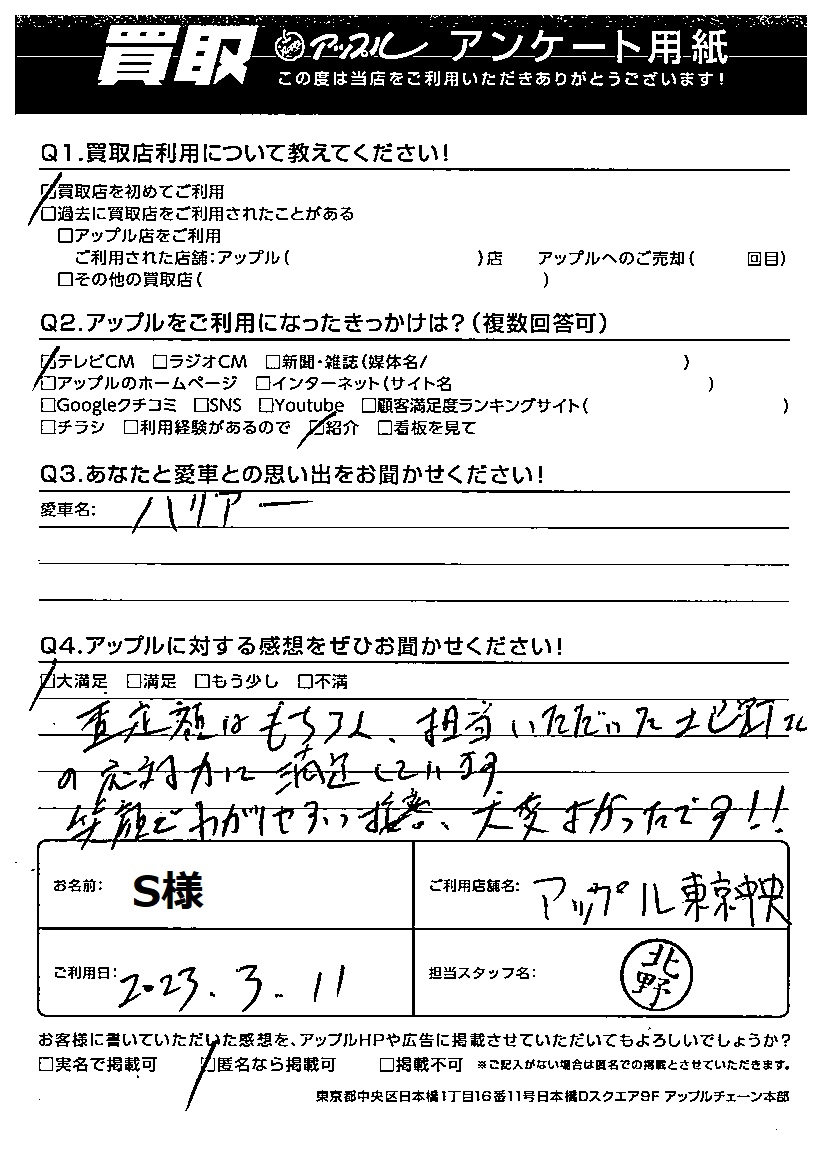 買取 アップル アンケート用紙
この度は当店をご利用いただきありがとうございます!
Q1.買取店利用について教えてください!
□買取店を初めてご利用
□過去に買取店をご利用されたことがある
□アップル店をご利用
ご利用された店舗:アップル( )店 アップルへのご売却( 回目)
□その他の買取店( )
Q2.アップルをご利用になったきっかけは?(複数回答可)
□テレビCM □ラジオCM □新聞・雑誌(媒体名/ )
□アップルのホームページ □インターネット(サイト名 )
□Googleクチコミ □SNS □Youtube □顧客満足度ランキングサイト( )
□チラシ □利用経験があるので □紹介 □看板を見て
Q3.あなたと愛車との思い出をお聞かせください!
愛車名: ハリアー
Q4.アップルに対する感想をぜひお聞かせください!
□大満足 □満足 □もう少し □不満
査定額はもちろん、担当いただいた
の応対力に満足しています
笑顔でわかりやすい接客、大変よかったです!!
お名前: S様 ご利用店舗名: アップル東京中央
ご利用日: 2023.3.11 担当スタッフ名: 北野
お客様に書いていただいた感想を、アップルHPや広告に掲載させていただいてもよろしいでしょうか?
□実名で掲載可 □匿名なら掲載可 □掲載不可 ※ご記入がない場合は匿名での掲載とさせていただきます。
東京都中央区日本橋1丁目16番11号日本橋Dスクエア9F アップルチェーン本部